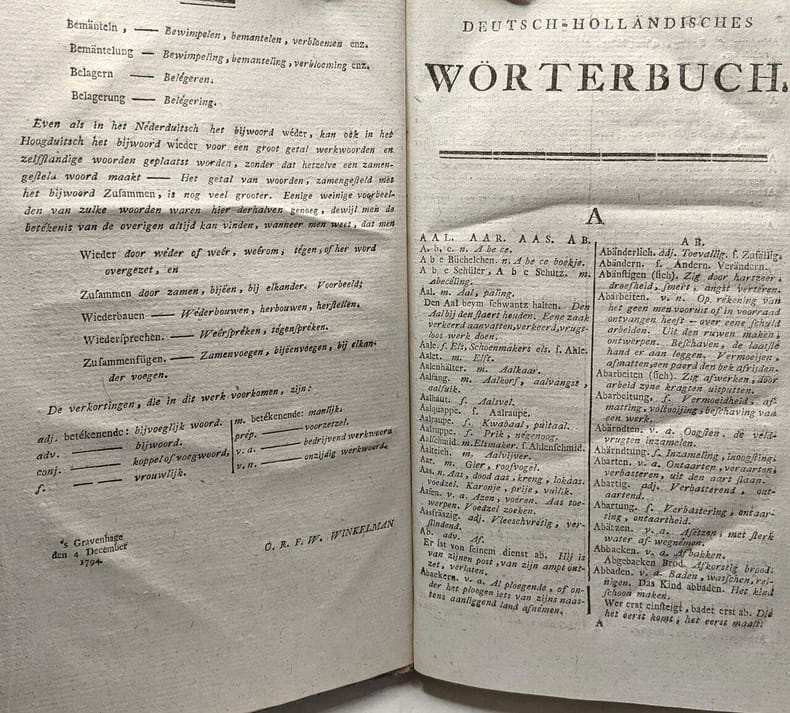 Bemänteln, — Bewimpelen, bemantelen, verbloemen enz.
Bemäntelung — Bewimpeling, bemanteling, verbloeming enz.
Belagern — Belégeren.
Belagerung — Belégering.
Even als in het Néderduitsch het bijwoord wéder, kan oék in het
Hoogduitsch het bijwoord wieder voor een groot getal werkwoorden en
zelfstandige woorden geplaatst worden, zonder dat hetzelve een zamen-
gesteld woord maakt — Het getal van woorden, zamengesteld met
het bijwoord Zusammen, is nog veel grooter. Eenige weinige voorbeel-
den van zulke woorden waren hier derhalven genoeg, dewijl men de
betékenis van de overigen altijd kan vinden, wanneer men weet, dat men
Wieder door wéder of weêr, weêrom, tégen, of her word
overgezet, en
Zusammen door zamen, bijéen, bij elkander. Voorbeeld;
Wiederbauen — Wéderbouwen, herbouwen, herstellen.
Wiedersprechen. — Weêrspréken, tégenspréken.
Zusammenfügen. — Zamenvoegen, bijéenvoegen, bij elkan-
der voegen.
De verkortingen, die in dit werk voorkomen, zijn:
adj. betékenende: bijvoeglijk woord.
adv. — bijwoord.
conj. — koppel of voegwoord,
f. — vrouwlijk.
m. betékenende: manlijk.
prép. — voorzetzel.
v. a. — bedrijvend werkwoord
v. n. — onzijdig werkwoord.
's Gravenhage
den 4 December
1794.
O. R. F. W. WINKELMAN
DEUTSCH-HOLLÄNDISCHES
WÖRTERBUCH.
A
AAL. AAR. AAS. AB.
A. b. c. n. A be ce.
A b c Büchelchen. n. A be ce boekje.
A b c Schüler, A b c Schutz. m.
Abecéling.
Aal. m. Aal, paling.
Den Aal beym schwantz halten. Den
Aal bij den staert houden. Eene zaak
verkeerd aanvatten, verkeerd, vrugt-
loos werk doen.
Aale. f. Els, Schoenmakers els. f. Ahle.
Aalet. m. Elft.
Aalenhälter. m. Aalkaar.
Aalfang. m. Aalkorf, aalvangst,
aalfuik.
Aalhaut. f. Aalsvel.
Aalquappe. f. Aalraupe.
Aalraupe. f. Kwabaal, puitaal.
Aalruppe. f. Prik, négenoog.
Aalschmid. m. Elsmaker. f. Ahlenschmid.
Aalteich. m. Aalvijver.
Aar. m. Gier, roofvogel.
Aas. n. Aas, dood aas, kreng, lokaas.
voedzel. Karonje, prije, vuilik.
Aasen. v. a. Azen, voeren. Aas toe-
werpen. Voedzel zoeken.
Aasfräszig. adj. Vleeschvretig, ver-
slindend.
Ab. adv. Af.
Er ist von seinem dienst ab. Hij is
van zijnen post, van zijn ampt ont-
zet, verlaten.
Abackern. v. a. Al ploegende, of on-
der het ploegen iets van zijns naas-
tens aanliggend land afnemen.
AB.
Abänderlich. adj. Toevallig. f. Zufällig.
Abändern. f. Ändern. Verändern.
Abänstigen (sich). Zig door hartzeer,
droefheid, smert, angst vertéren.
Abarbeiten. v. n. Op rékening van
het geen men vooruit of in voorraad
ontvangen heeft — over eene schuld
arbeiden. Uit den ruwen maken,
ontwerpen. Beschaven, de laatste
hand er aan leggen. Vermoeijen,
afmatten, een paerd den bek afrijden.
Abarbeiten (sich). Zig afwerken, door
arbeid zyne kragten uitputten.
Abarbeitung, f. Vermoeidheid, af-
matting, voltooijing, beschaving van
een werk.
Abärndten. v. a. Oogsten. de veld-
vrugten inzamelen.
Abärndtung. f. Inzameling, inoogsting.
Abarten. v. a. Ontaarten, veraarten,
verbasteren, uit den aart slaan.
Abartig. adj. Verbasterend, ont-
aartend.
Abartung. f. Verbastering, ontaar-
ting, ontaartheid.
Abätzen. v. a. Afëtzen, met sterk
water af-wegnémen.
Abbacken. v. a. Afbakken.
Abgebacken Brod. Afkorstig brood.
Abbaden. v. a. Baden, wasschen, rei-
nigen. Das Kind abbaden. Het kind
schoon maken.
Wer erst einsteigt, badet erst ab. Die
het eerst komt, het eerst maalt.
A